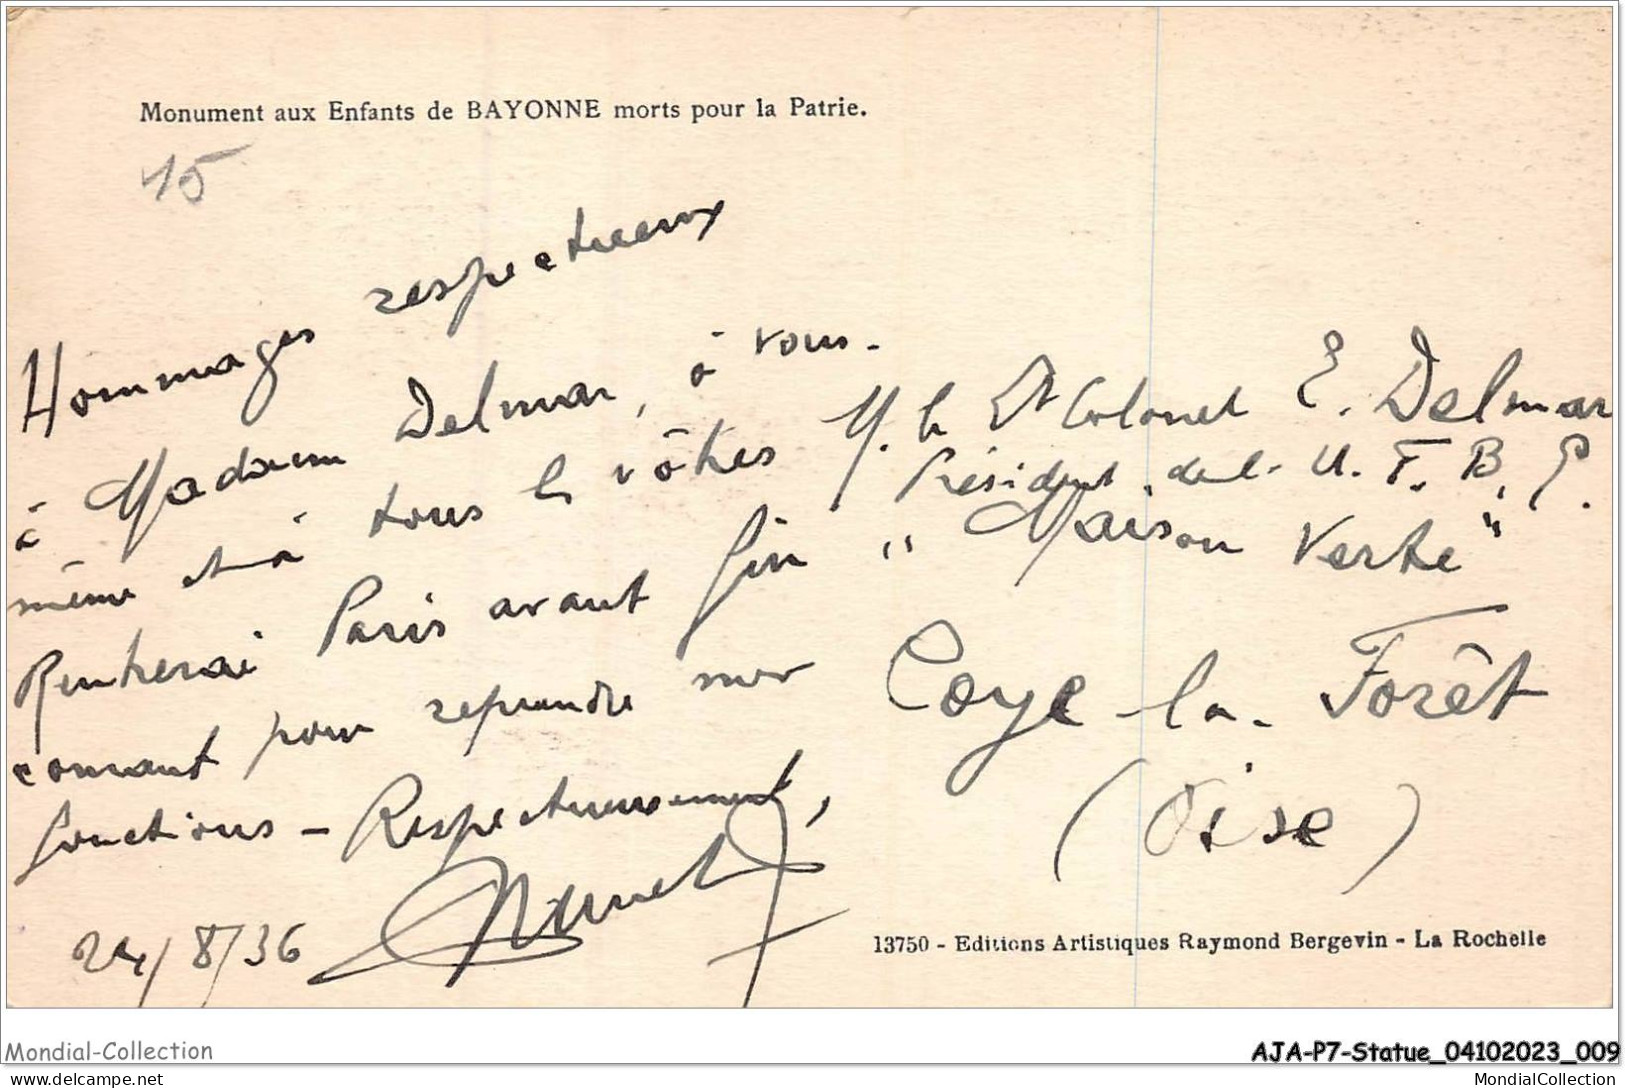 Monument aux Enfants de BAYONNE morts pour la Patrie.
15
Hommages respectueux
à Madame Delmar, à vous-
même et à tous les vôtres
Rentrerai Paris avant fin
courant pour reprendre mes
fonctions - Respectueusement,
24/8/36
M. le Dt Colonel E. Delmar
Président de l' U. F. B. P.
"Maison Verte"
Coye-la-Forêt
(Oise)
13750 - Editions Artistiques Raymond Bergevin - La Rochelle
Mondial-Collection
AJA-P7-Statue_04102023_009
www.mondial-collection.com
MondialCollection